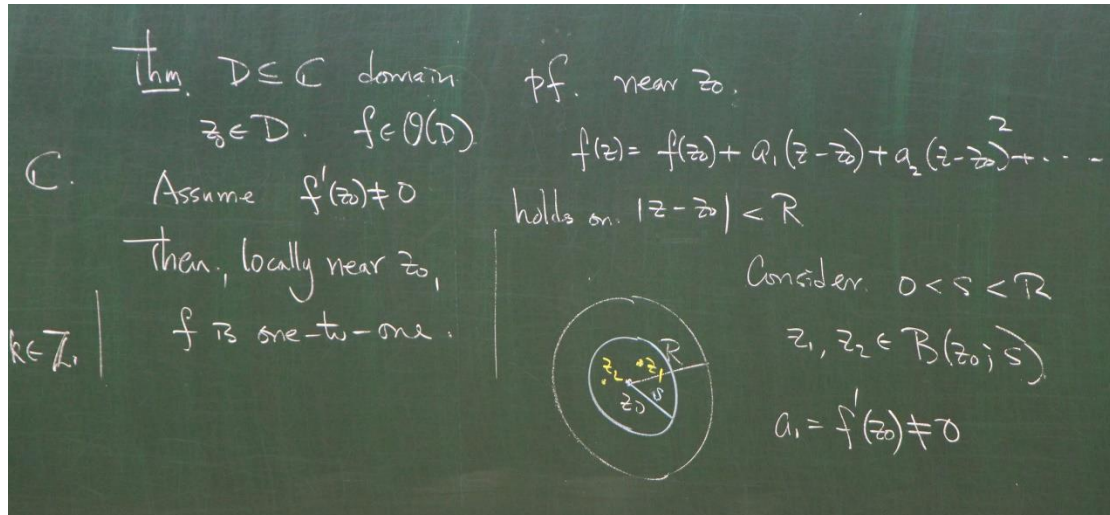 Thm. D ⊆ ℂ domain
z₀ ∈ D. f ∈ O(D)
Assume f'(z₀) ≠ 0
Then, locally near z₀,
f is one-to-one.
ℂ.
k ∈ ℤ.
pf. near z₀.
f(z) = f(z₀) + a₁(z - z₀) + a₂(z - z₀)² + ....
holds on |z - z₀| < R
Consider 0 < s < R
z₁, z₂ ∈ B(z₀; s)
a₁ = f'(z₀) ≠ 0
R
z₂ z₁
z₀ s